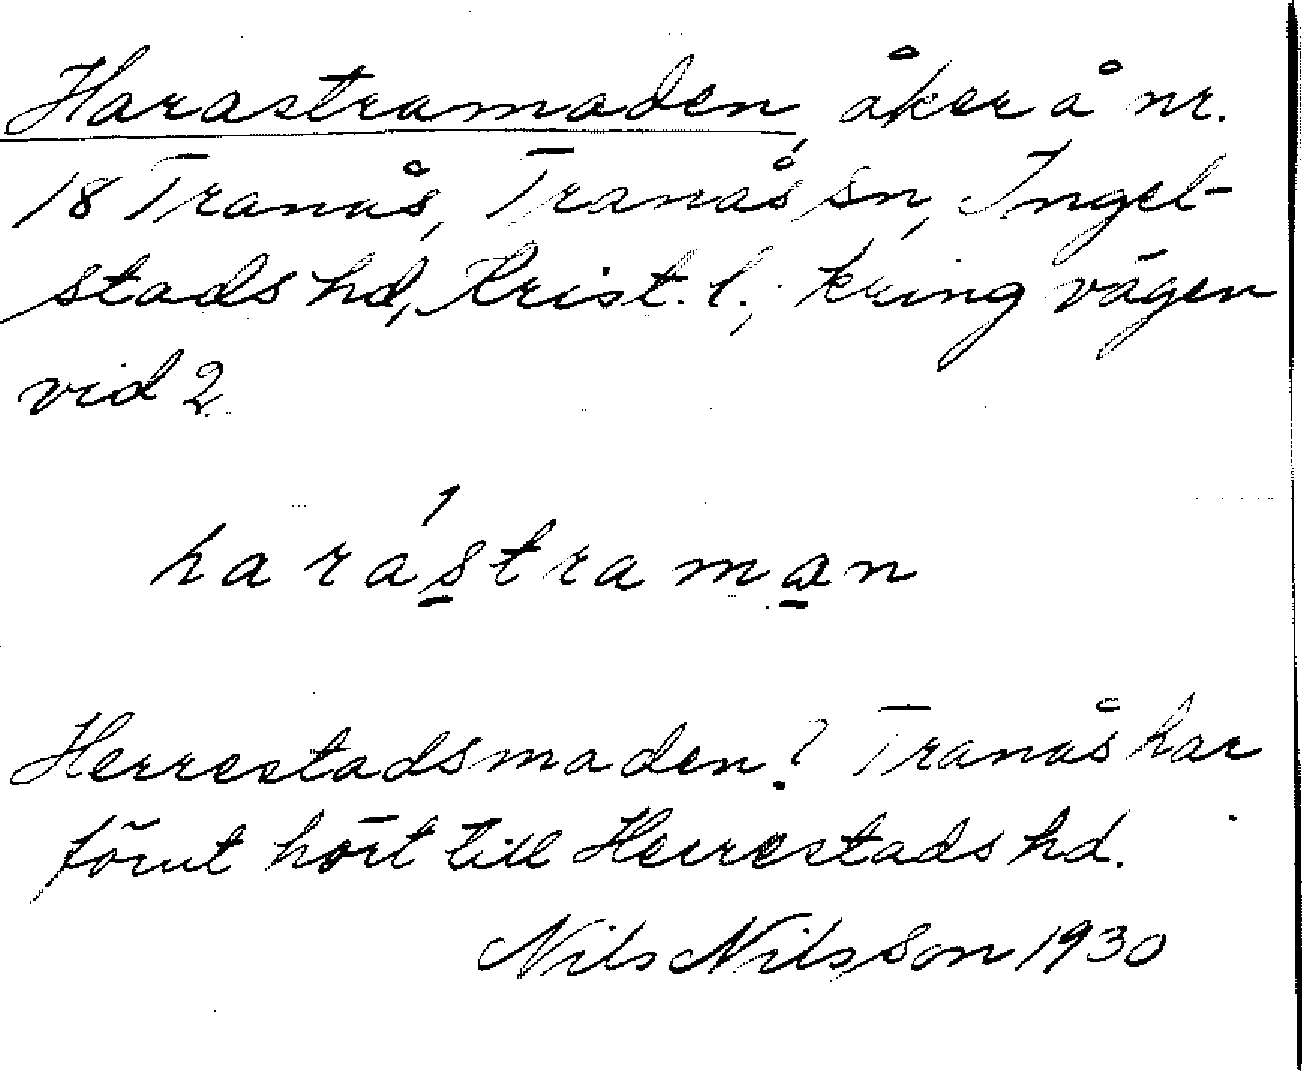 Harastramaden, åker å nr.
18 Tranås, Tranås sn, Ingel-
stads hd, Krist. l.; kring vägen
vid 2
harástraman
Herrestadsmaden? Tranås har
förut hört till Herrestads hd.
Nils Nilsson 1930